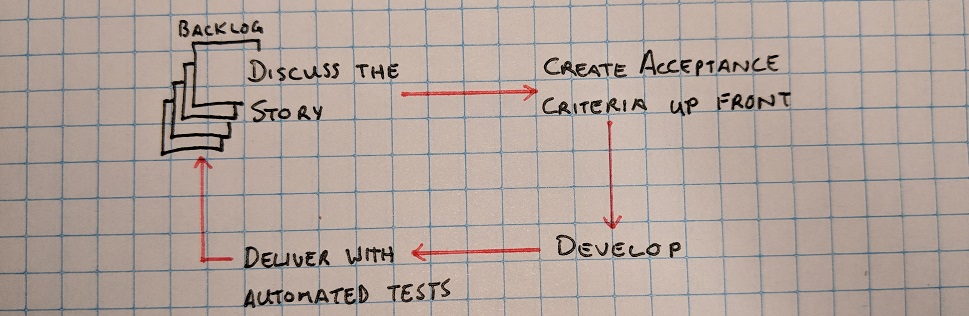 BACKLOG
DISCUSS THE
STORY
CREATE ACCEPTANCE
CRITERIA UP FRONT
DEVELOP
DELIVER WITH
AUTOMATED TESTS